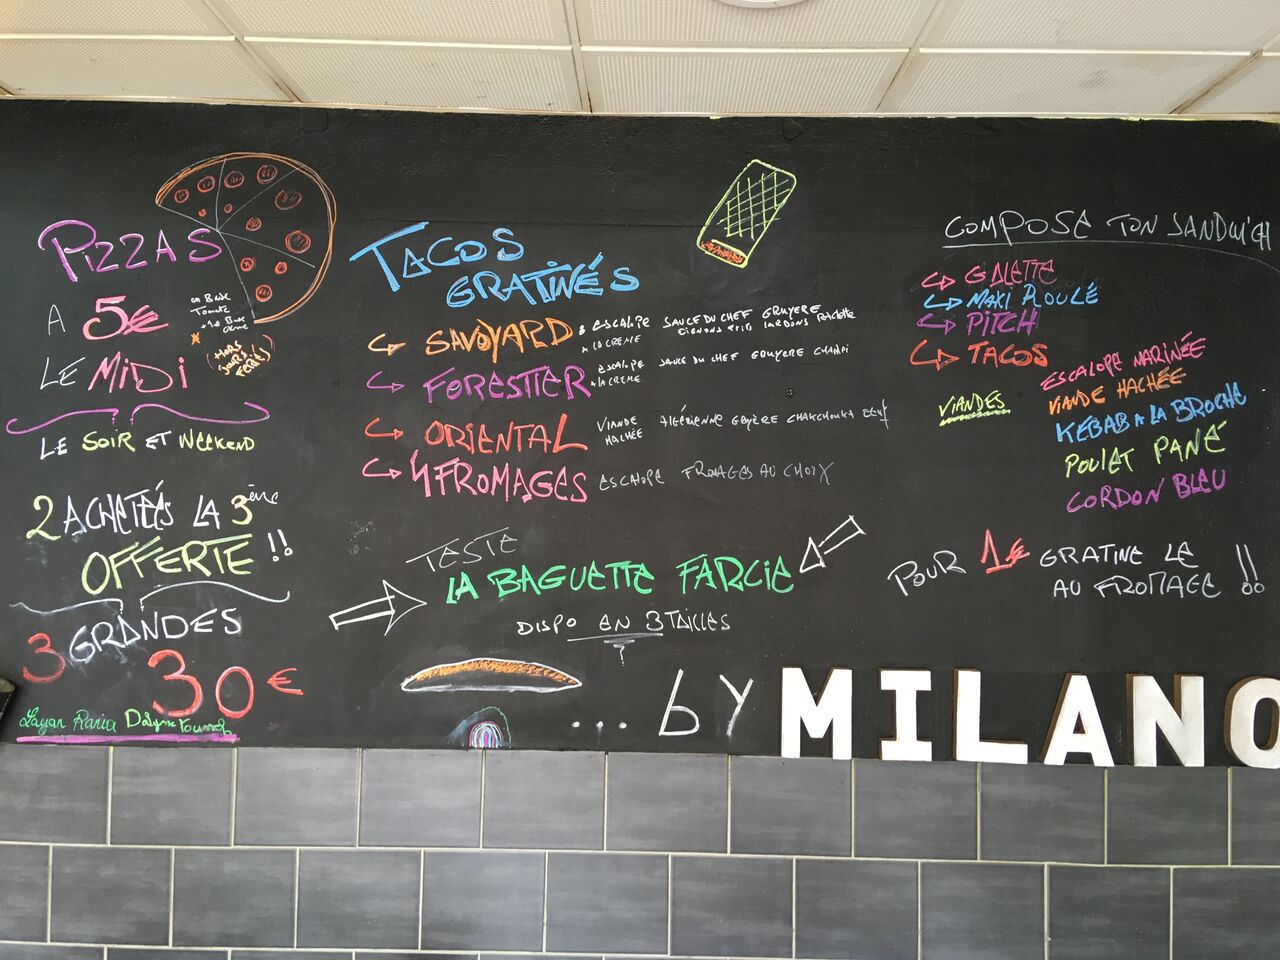 PIZZAS
A 5€
en Base
Tomate
+1€ Base
Crème
LE MIDI
* (HORS
JOURS
FERIÉS)
LE SOIR ET WEEKEND
2 ACHETÉS LA 3ème
OFFERTE !!
3 GRANDES
30€
Layan Rania
TACOS
GRATINÉS
SAVOYARD
ESCALOPE SAUCE DU CHEF GRUYERE
A LA CREME OIGNONS LARDONS RACLETTE
FORESTIER
ESCALOPE SAUCE DU CHEF GRUYERE CHAMPI
A LA CREME
ORIENTAL
VIANDE ALGÉRIENNE GRUYÈRE CHAKCHOUKA OEUF
HACHÉE
4 FROMAGES ESCALOPE FROMAGES AU CHOIX
TESTE
LA BAGUETTE FARCIE
DISPO EN 3 TAILLES
... by MILANO
COMPOSE TON SANDWICH
GALETTE
MAKI ROULÉ
PITCH
TACOS
VIANDES
ESCALOPE MARINÉE
VIANDE HACHÉE
KEBAB A LA BROCHE
POULET PANÉ
CORDON BLEU
POUR 1€ GRATINE LE
AU FROMAGE !!